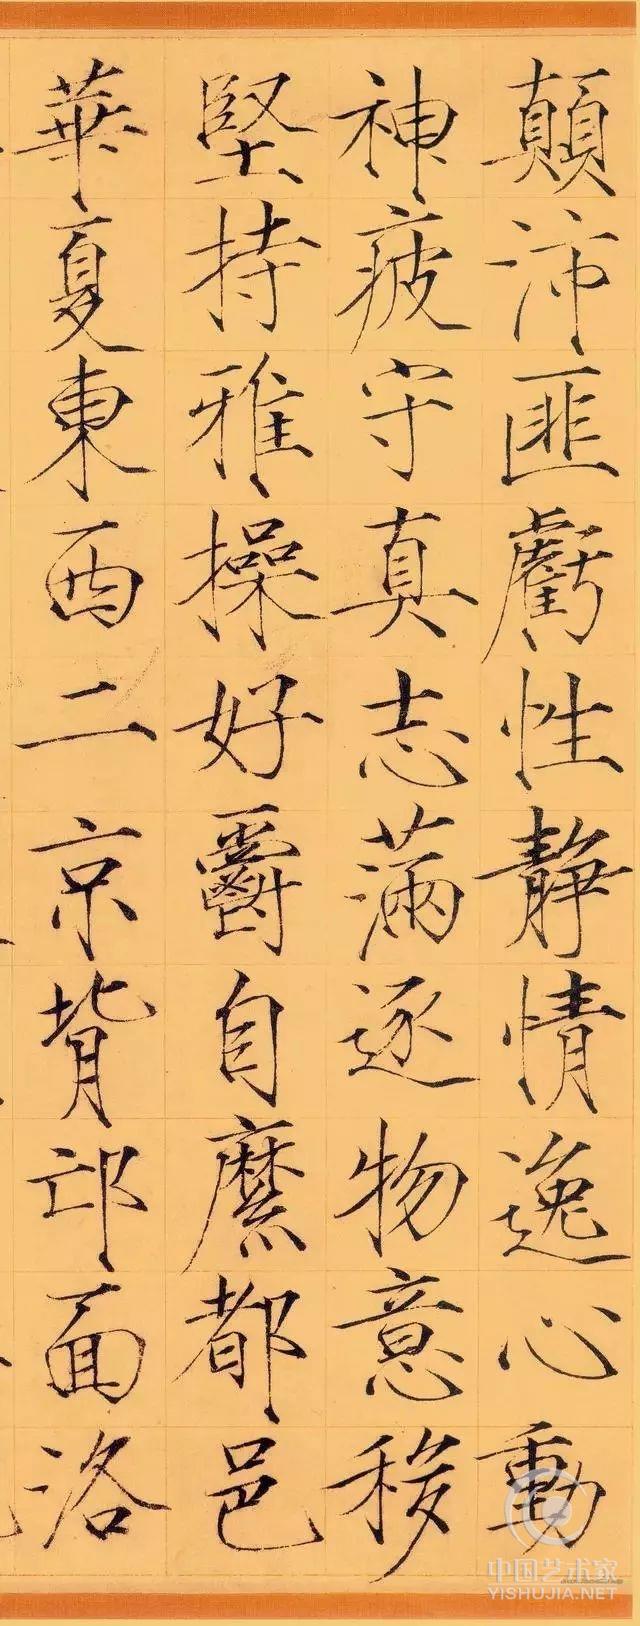 顛沛匪虧性靜情逸心動
神疲守真志滿逐物意移
堅持雅操好爵自縻都邑
華夏東西二京背邙面洛
中国艺术家
YISHUJIA.NET